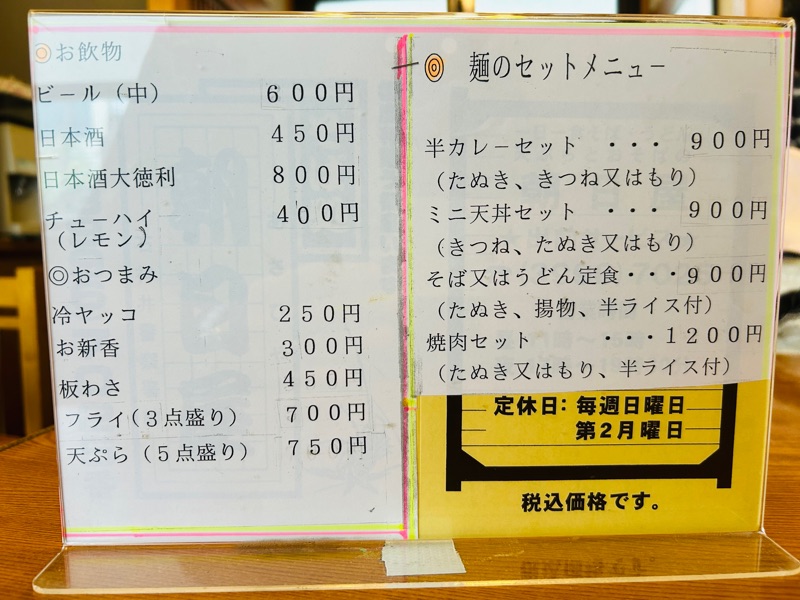 ◎お飲物
ビール（中） 600円
日本酒 450円
日本酒大徳利 800円
チューハイ 400円
（レモン）
◎おつまみ
冷ヤッコ 250円
お新香 300円
板わさ 450円
フライ（3点盛り） 700円
天ぷら（5点盛り） 750円
◎ 麺のセットメニュー
半カレーセット ・・・ 900円
（たぬき、きつね又はもり）
ミニ天丼セット ・・・ 900円
（きつね、たぬき又はもり）
そば又はうどん定食・・・900円
（たぬき、揚物、半ライス付）
焼肉セット ・・・1200円
（たぬき又はもり、半ライス付）
定休日：毎週日曜日
第2月曜日
税込価格です。